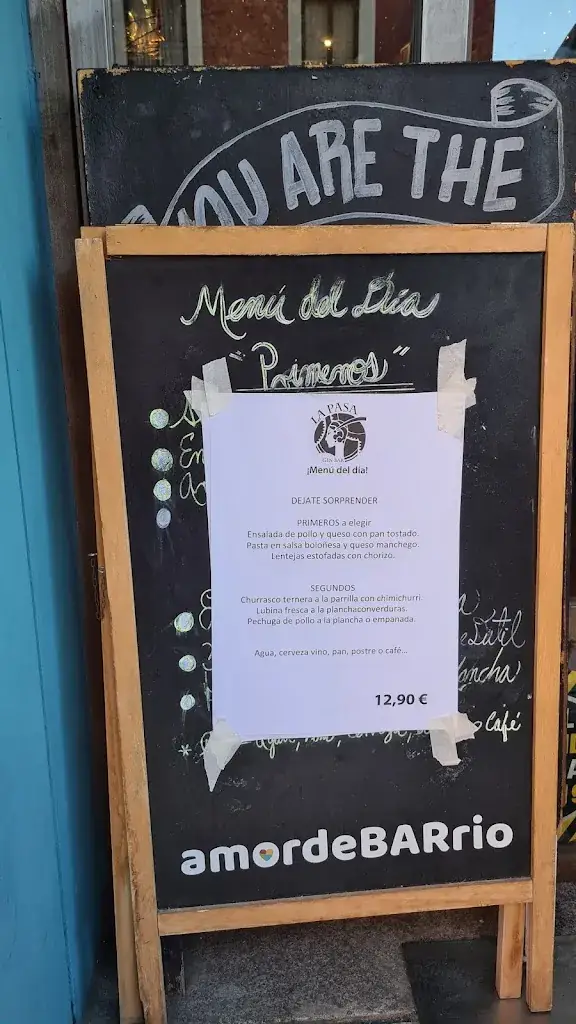 YOU ARE THE
Menú del Día
"Primeros"
LA PASA
GIN BAR
¡Menú del día!
DEJATE SORPRENDER
PRIMEROS a elegir
Ensalada de pollo y queso con pan tostado.
Pasta en salsa boloñesa y queso manchego.
Lentejas estofadas con chorizo.
SEGUNDOS
Churrasco ternera a la parrilla con chimichurri.
Lubina fresca a la planchaconverduras.
Pechuga de pollo a la plancha o empanada.
Agua, cerveza vino, pan, postre o café...
12,90 €
Café
amordeBARrio